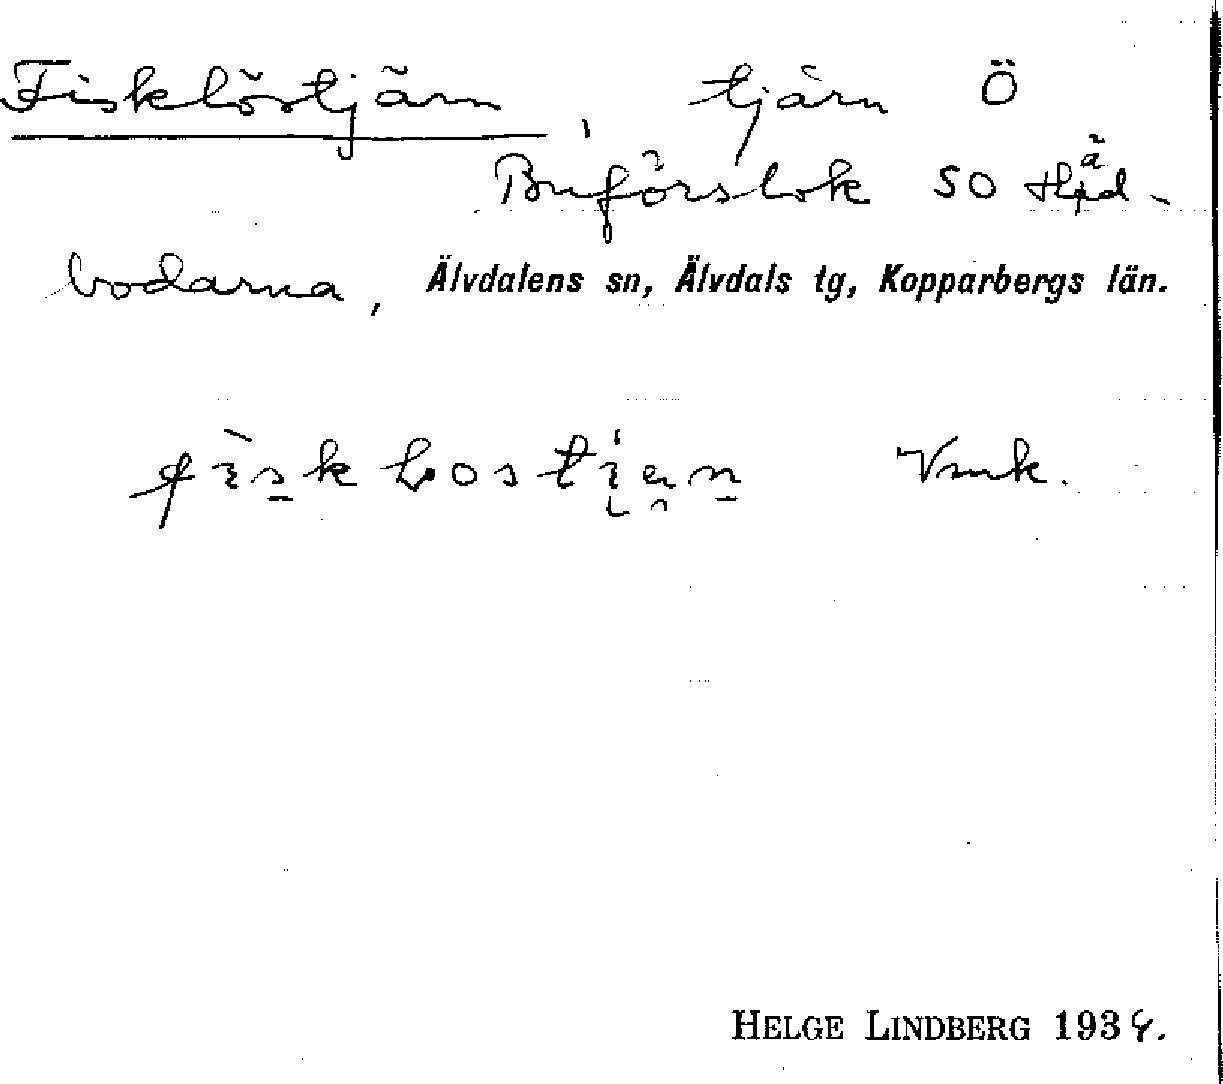 Fisklöstjärn, tjärn Ö
Buförslok SO Häd-
bodarna, Älvdalens sn, Älvdals tg, Kopparbergs län.
Vmk.
HELGE LINDBERG 1934.